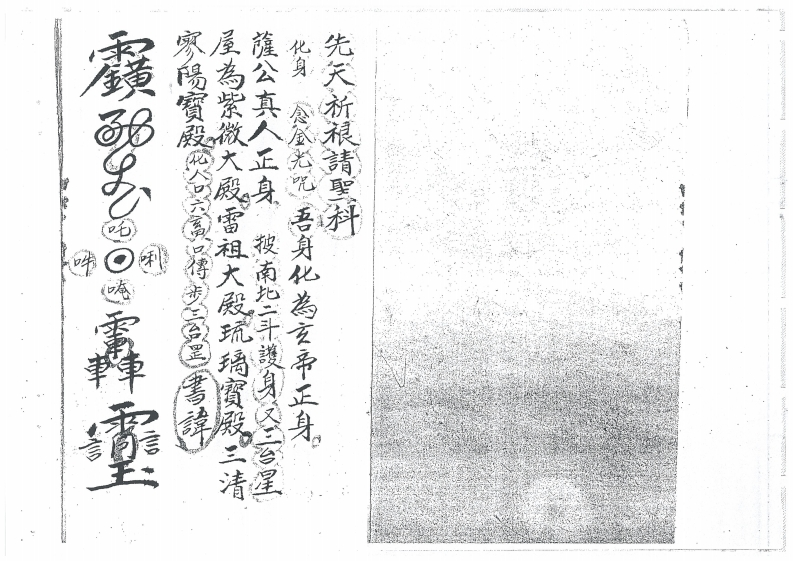 先天祈禳請聖科
化身 念金光咒 吾身化為玄帝正身
薩公真人正身 披南北二斗護身又三台星
屋為紫微大殿雷祖大殿琉璃寶殿三清
寥陽寶殿化人口六畜口傳步三台罡書諱
吒
吽 唎
唵